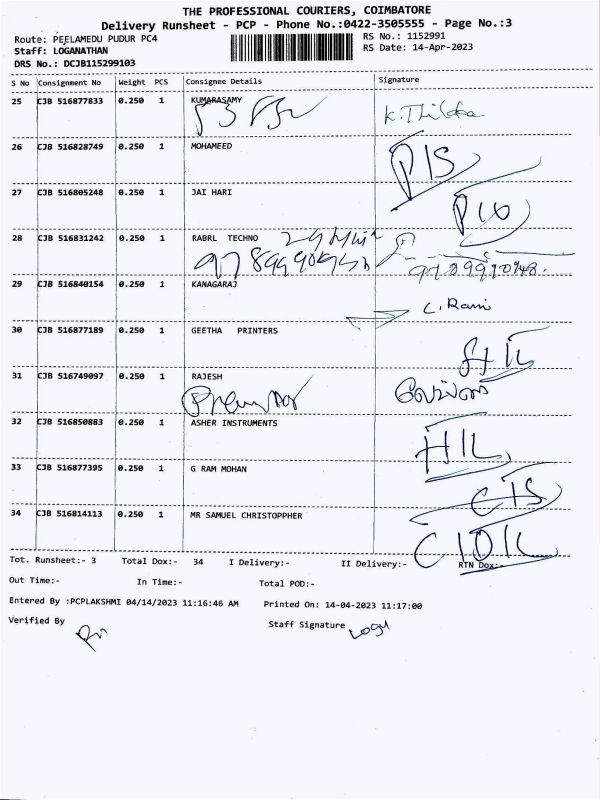 THE PROFESSIONAL COURIERS, COIMBATORE
Delivery Runsheet - PCP - Phone No.:0422-3505555 - Page No.:3
Route: PEELAMEDU PUDUR PC4 RS No.: 1152991
Staff: LOGANATHAN RS Date: 14-Apr-2023
DRS No.: DCJB115299103
S No Consignment No Weight PCS Consignee Details Signature
25 CJB 516877833 0.250 1 KUMARASAMY
26 CJB 516828749 0.250 1 MOHAMEED
P1S
27 CJB 516805248 0.250 1 JAI HARI
28 CJB 516831242 0.250 1 RABRL TECHNO
29 CJB 516840154 0.250 1 KANAGARAJ
C. Rani
30 CJB 516877189 0.250 1 GEETHA PRINTERS
31 CJB 516749097 0.250 1 RAJESH
32 CJB 516850883 0.250 1 ASHER INSTRUMENTS
HIL
33 CJB 516877395 0.250 1 G RAM MOHAN
CTS
34 CJB 516814113 0.250 1 MR SAMUEL CHRISTOPPHER
Tot. Runsheet:- 3 Total Dox:- 34 I Delivery:- II Delivery:- RTN Dox:-
Out Time:- In Time:- Total POD:-
Entered By :PCPLAKSHMI 04/14/2023 11:16:46 AM Printed On: 14-04-2023 11:17:00
Verified By Staff Signature Logu